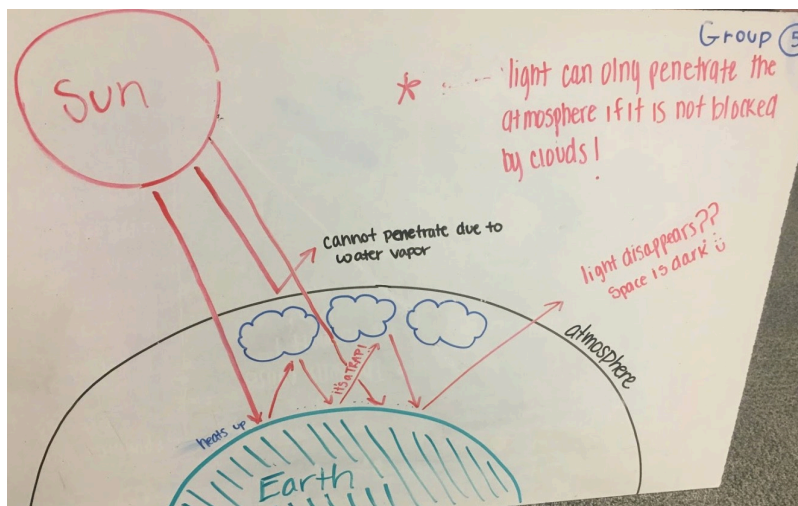 Group 5
Sun
* ...... light can olny penetrate the
atmosphere if it is not blocked
by clouds!
cannot penetrate due to
water vapor
light disappears??
Space is dark
atmosphere
it's a TRAP!
heats up
Earth